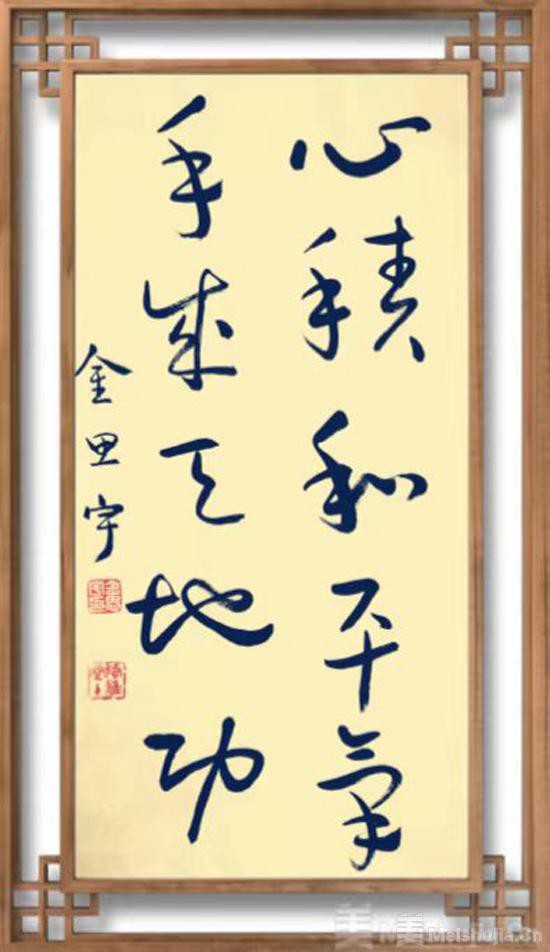 心積和平氣
手成天地功
金思宇
Meishujia.cn